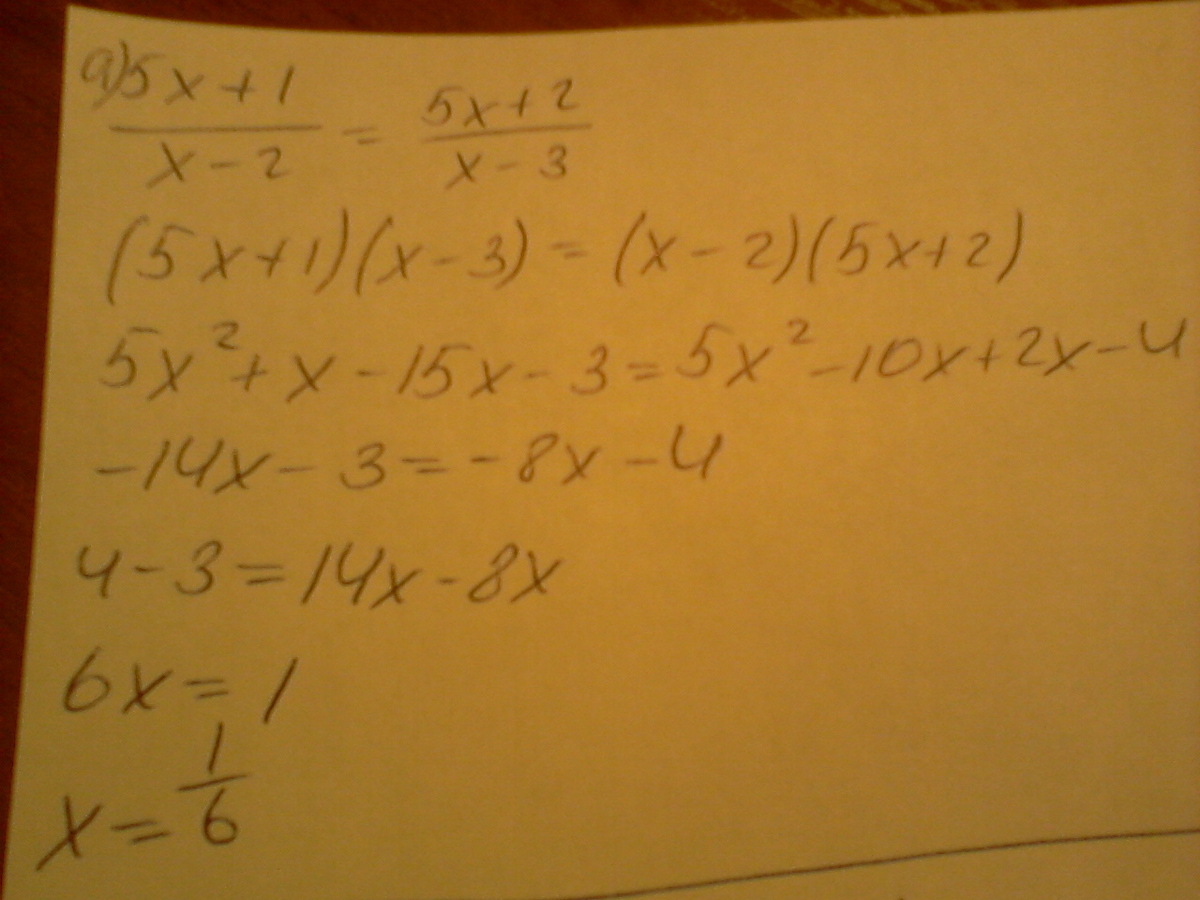 а) (5x+1)/(x-2) = (5x+2)/(x-3)
(5x+1)(x-3)=(x-2)(5x+2)
5x²+x-15x-3=5x²-10x+2x-4
-14x-3=-8x-4
4-3=14x-8x
6x=1
x=1/6